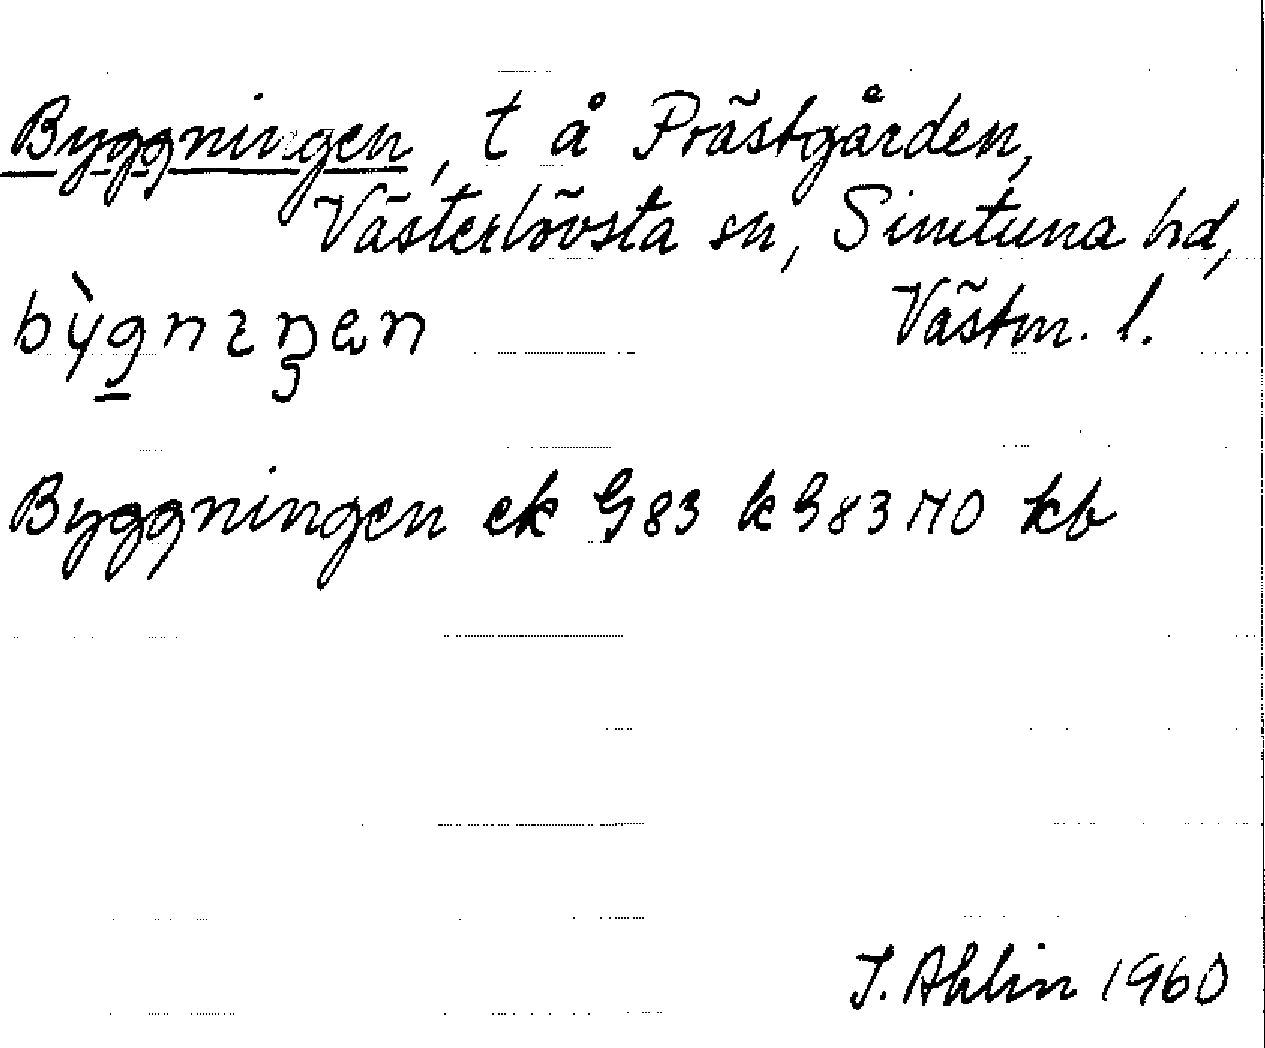 Byggningen, t å Prästgården,
Västerlövsta sn, Simtuna hd,
Västm. l.
bỳgnɪŋən
Byggningen ek G83 k G8370 kb
J. Ahlin 1960